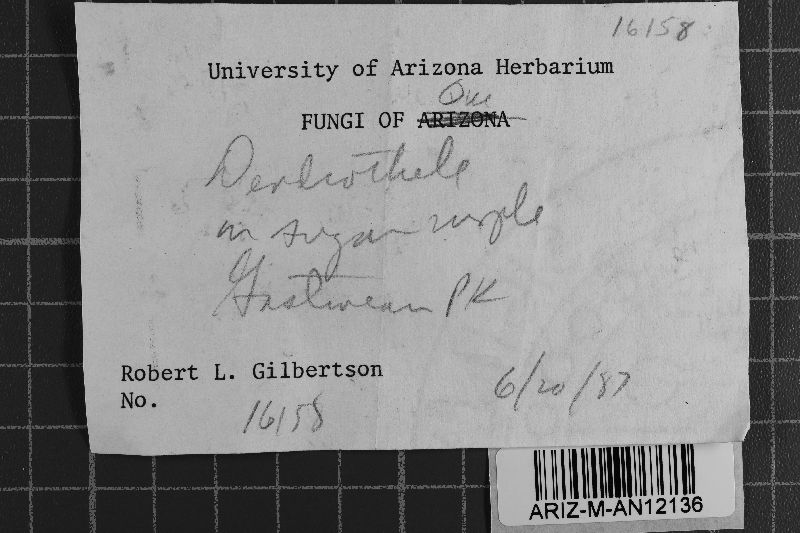 16158
University of Arizona Herbarium
Que
FUNGI OF ARIZONA
Dendrothele
on sugar maple
Gatineau PK
Robert L. Gilbertson
6/20/87
No.
16158
ARIZ-M-AN12136